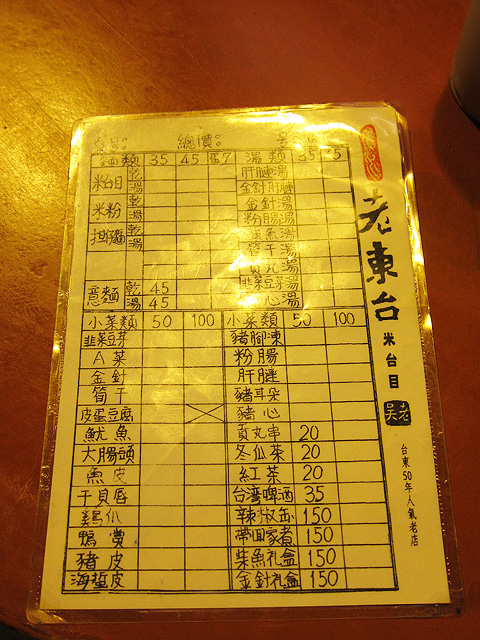 總價:
麵類 35 45 蛋7 湯類 35 45
米台目 乾 肝腱湯
湯 金針肝腱
米粉 乾 金針湯
湯 粉腸湯
担麵 乾 魚湯
湯 筍干湯
貢丸湯
韭菜豆芽湯
意麵 乾 45 心湯
湯 45
小菜類 50 100 小菜類 50 100
韭菜豆芽 豬腳凍
A菜 粉腸
金針 肝腱
筍干 豬耳朵
皮蛋豆腐 豬心
魷魚 貢丸串 20
大腸頭 冬瓜茶 20
魚皮 紅茶 20
干貝唇 台湾啤酒 35
雞爪 辣椒缶 150
鴨賞 帶回家煮 150
豬皮 柴魚礼盒 150
海蜇皮 金針礼盒 150
老東台
米台目
老吳
台東50年人氣老店